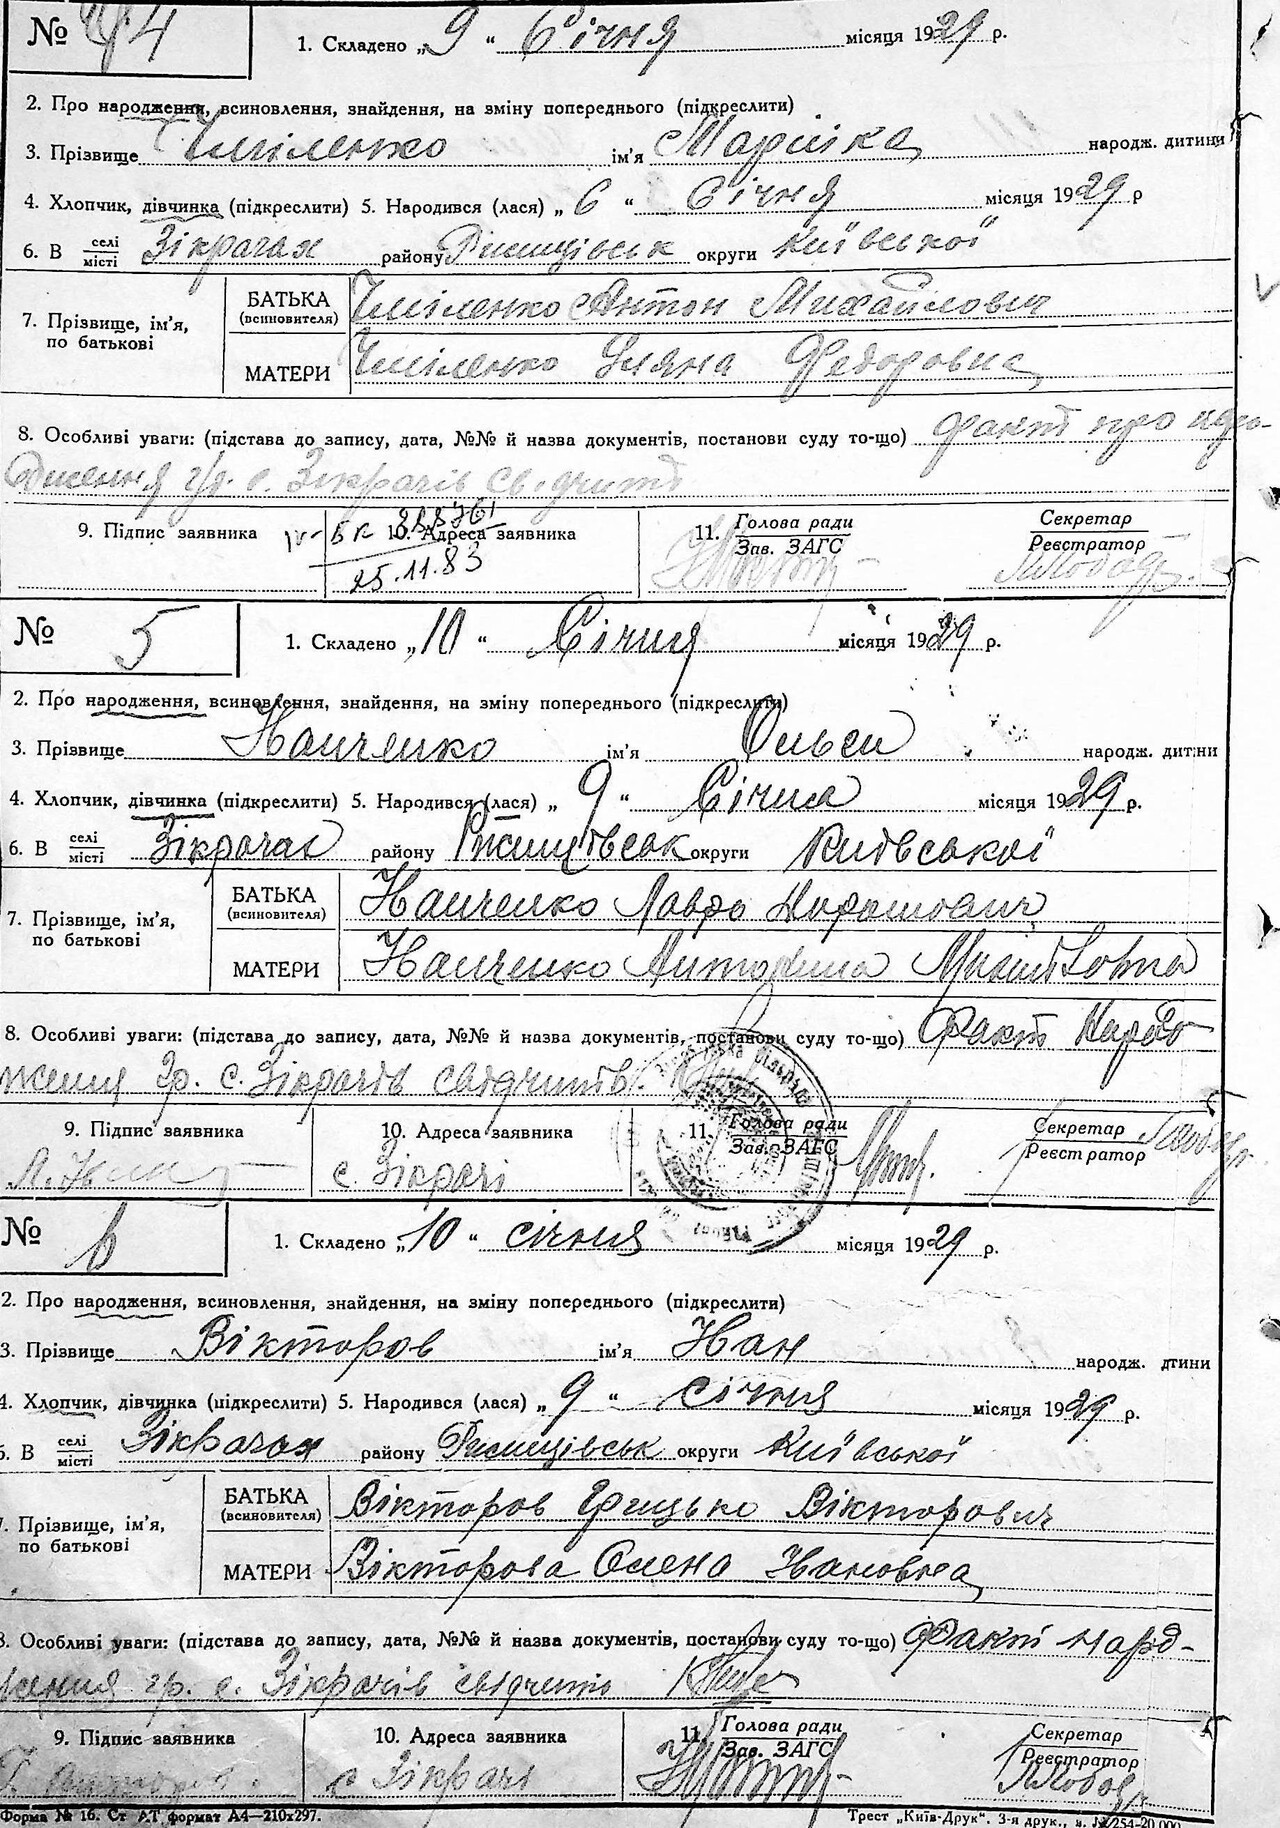 № 4 1. Складено „9“ Січня місяця 1929 р.
2. Про народження, всиновлення, знайдення, на зміну попереднього (підкреслити)
3. Прізвище Чміленко ім'я Марійка народж. дитини
4. Хлопчик, дівчинка (підкреслити) 5. Народився (лася) „6“ Січня місяця 1929 р
6. В селі місті Зікрачах району Ржищівськ округи Київської
7. Прізвище, ім'я, по батькові БАТЬКА (всиновителя) Чміленко Антон Михайлович
МАТЕРИ Чміленко Уляна Федоровна
8. Особливі уваги: (підстава до запису, дата, №№ й назва документів, постанови суду то-що) факт про наро-
дження гр. с. Зікрачів свідчить
9. Підпис заявника 10. Адреса заявника 11. Голова ради Зав. ЗАГС Секретар Реєстратор
25.11.83
№ 5 1. Складено „10“ Січня місяця 1929 р.
2. Про народження, всиновлення, знайдення, на зміну попереднього (підкреслити)
3. Прізвище ім'я Ольга народж. дитини
4. Хлопчик, дівчинка (підкреслити) 5. Народився (лася) „9“ Січня місяця 1929 р.
6. В селі місті Зікрачах району Ржищівськ округи Київської
7. Прізвище, ім'я, по батькові БАТЬКА (всиновителя) Лавро
МАТЕРИ
8. Особливі уваги: (підстава до запису, дата, №№ й назва документів, постанови суду то-що) Факт Наро
ження гр. с. Зікрачів свідчить
9. Підпис заявника 10. Адреса заявника 11. Голова ради Зав. ЗАГС Секретар Реєстратор
с. Зікрачі
№ 6 1. Складено „10“ січня місяця 1929 р.
2. Про народження, всиновлення, знайдення, на зміну попереднього (підкреслити)
3. Прізвище Вікторов ім'я Іван народж. дтини
4. Хлопчик, дівчинка (підкреслити) 5. Народився (лася) „9“ січня місяця 1929 р.
6. В селі місті Зікрачах району Ржищівськ округи Київської
7. Прізвище, ім'я, по батькові БАТЬКА (всиновителя) Вікторов Грицько Вікторович
МАТЕРИ Вікторова Олена Івановна
8. Особливі уваги: (підстава до запису, дата, №№ й назва документів, постанови суду то-що) Факт народ-
ження гр. с. Зікрачів свідчить
9. Підпис заявника 10. Адреса заявника 11. Голова ради Зав. ЗАГС Секретар Реєстратор
с Зікрачі
Форма № 16. Ст АТ формат А4—210х297. Трест „Київ-Друк“. 3-я друк.,